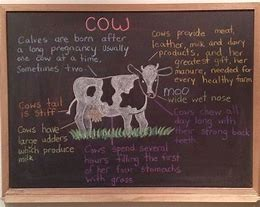 COW
Calves are born after
a long pregnancy usually
one cow at a time,
Sometimes two.
Cows provide meat,
leather, milk and dairy
products, and her
greatest gift, her
manure, needed for
every healthy farm
moo
wide wet nose
Cows tail
is stiff
Cows have
large udders
which produce
milk
Cows chew all
day long with
their strong back
teeth
Cows spend several
hours filling the first
of her four stomachs
with grass.